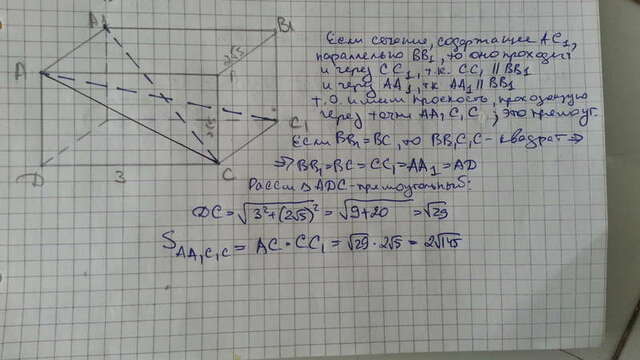 A1
B1
A
2√5
C1
2√5
D
3
C
Если сечение, содержащее AC1,
параллельно BB1, то оно проходит
и через CC1, т.к. CC1 || BB1
и через AA1, т.к AA1 || BB1
Т.О. имеем плоскость, проходящую
через точки AA1C1C, это прямоуг.
Если BB1 = BC, то BB1C1C - квадрат ⇒
⇒ BB1 = BC = CC1 = AA1 = AD
Рассм Δ ADC - прямоугольный:
DC = √(3² + (2√5)²) = √(9+20) = √29
S AA1C1C = AC · CC1 = √29 · 2√5 = 2√145